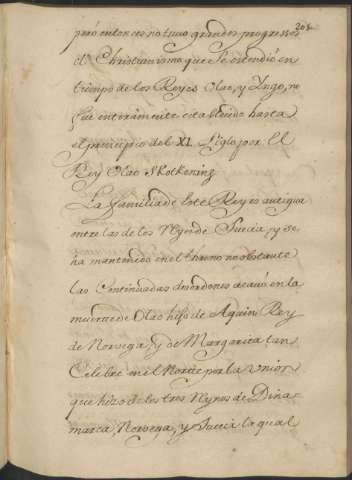 208
pero entonces no tuvo grandes progressos
el Christianismo que se estendió en
tiempo de los Reyes Olao, y Ingo, no
fue enteramente establecido hasta
el principio del XI. Siglo por El
Rey Olao Skotkening
La familia de este Rey es antigua
entre las de los Reyes de Suecia, y se
ha mantenido en el throno no obstante
las continuadas desordenes acavó en la
muerte de Olao hijo de Aquin Rey
de Norvega, y de Margarita tan
Celebre en el Norte por la Union
que hizo de los tres Reynos de Dina
marca, Norvega, y Suecia la qual